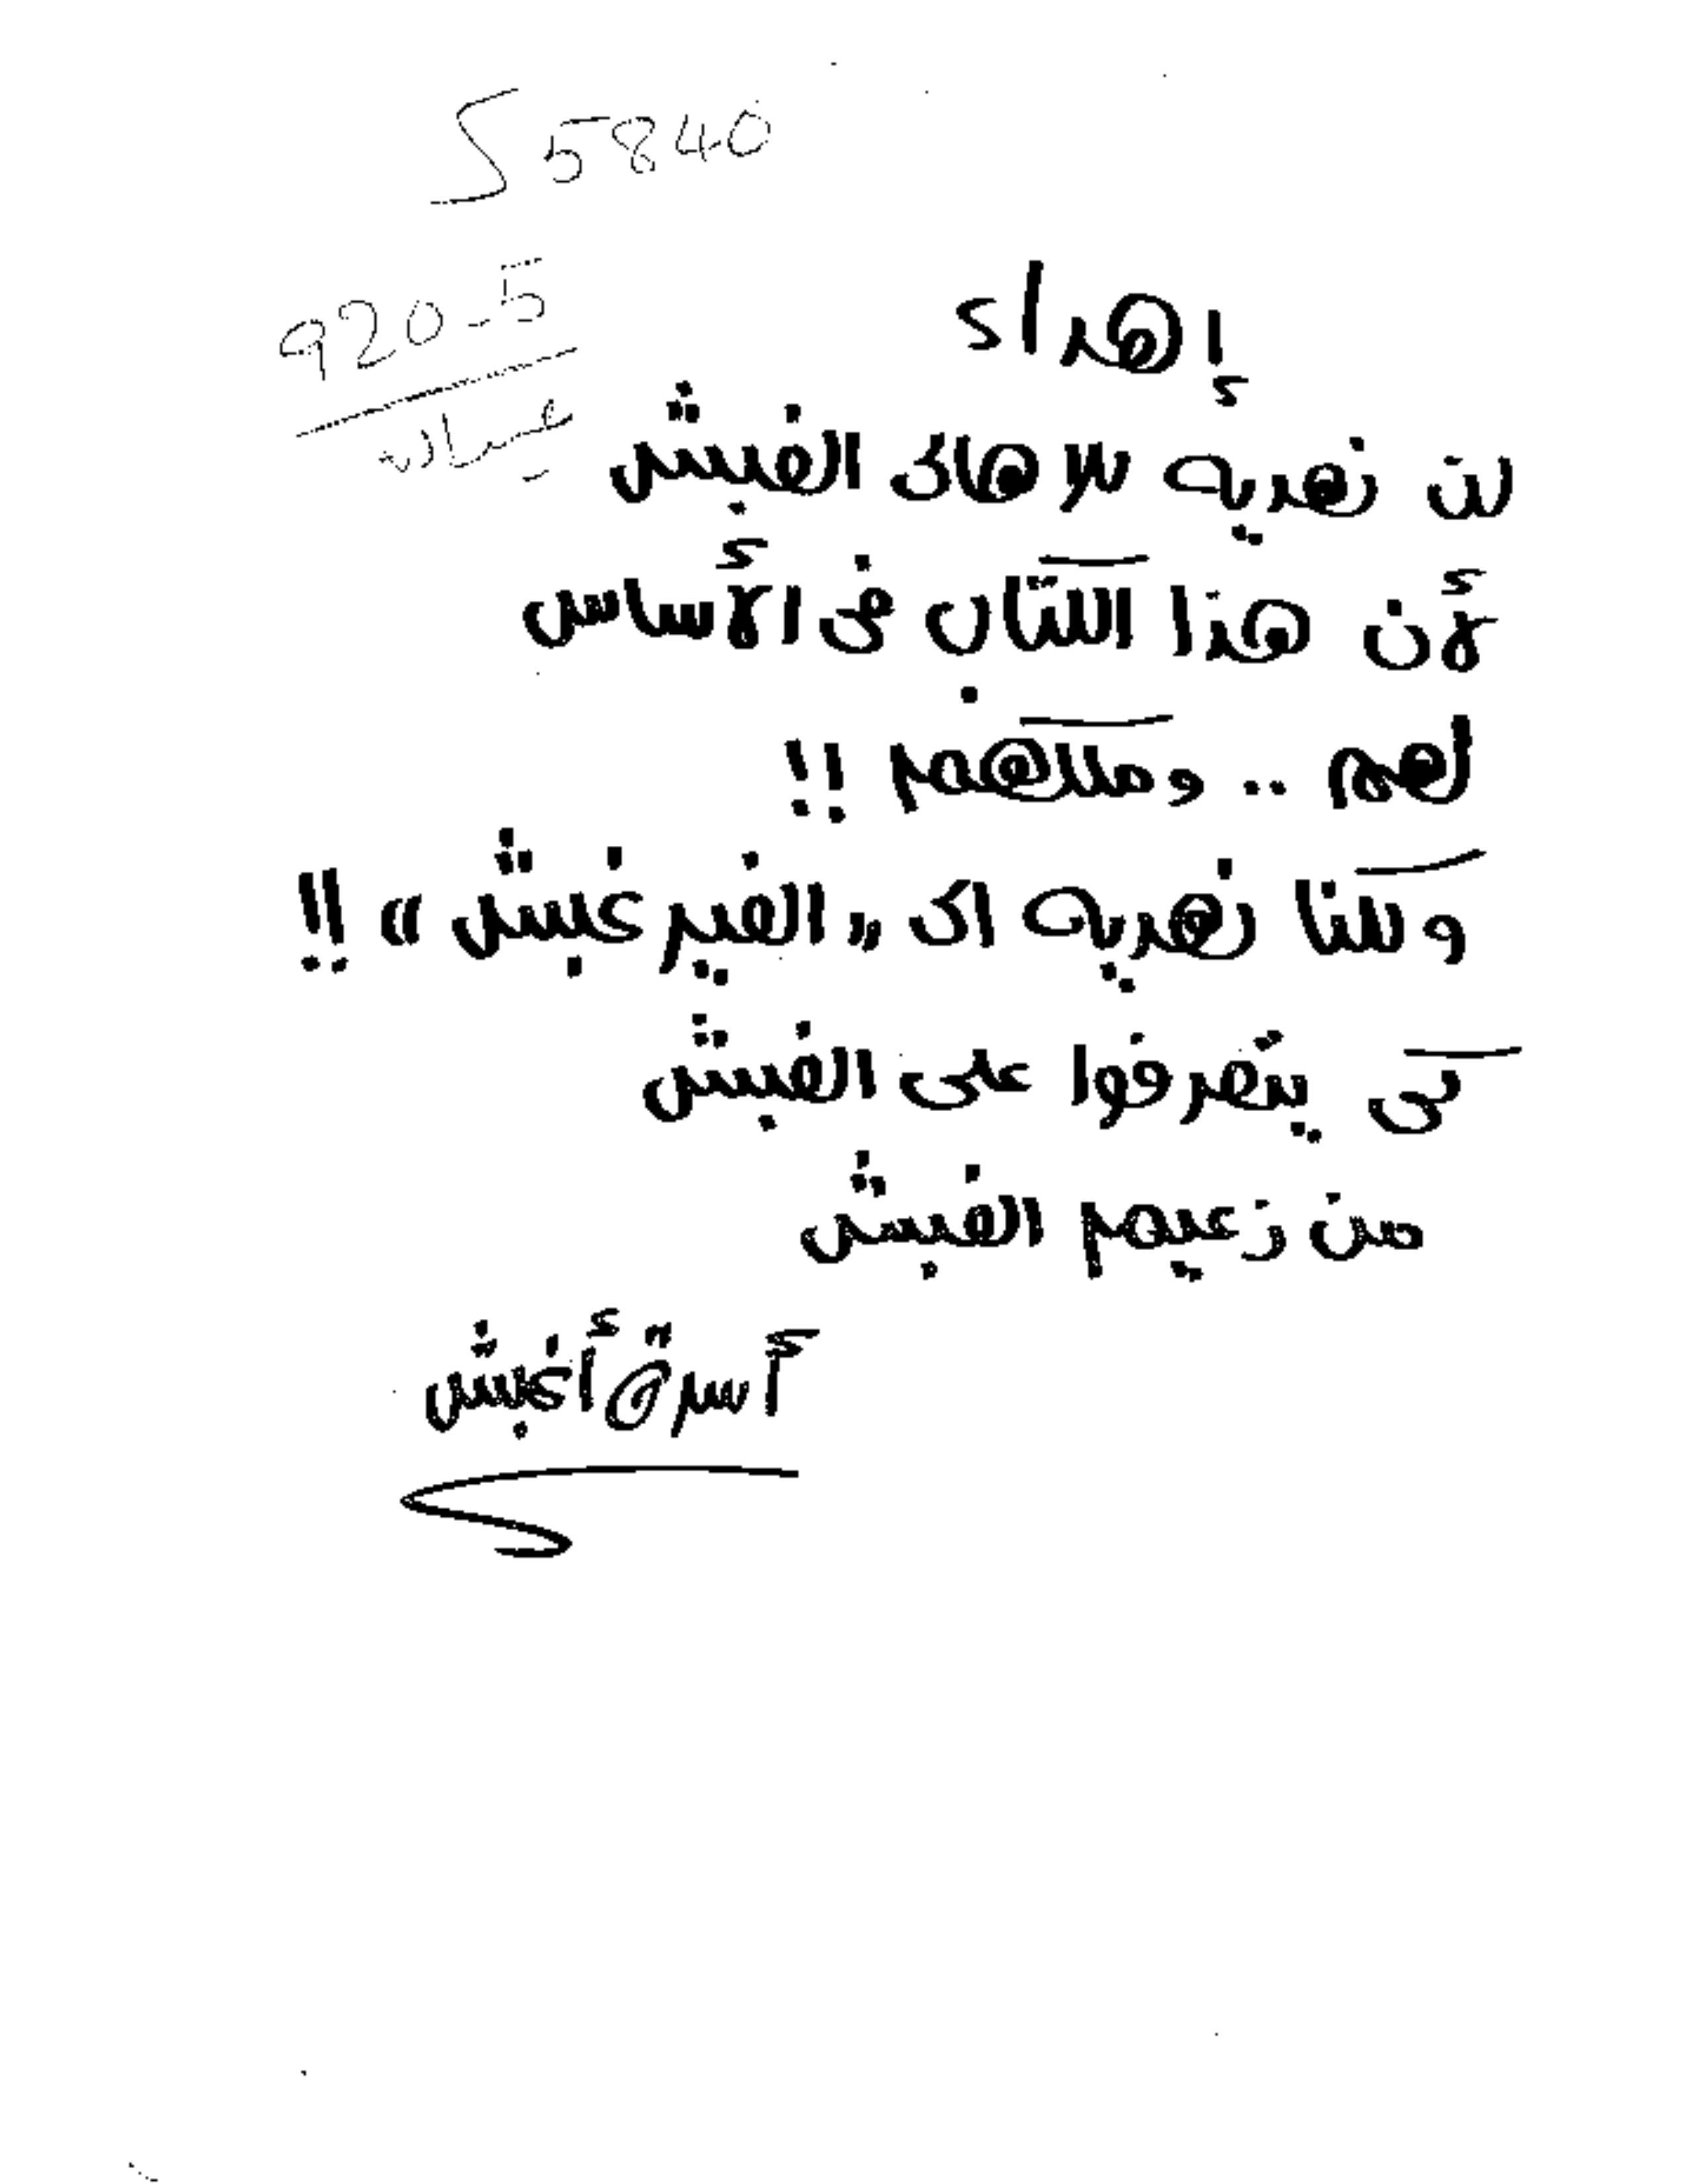 S 5840
920.5
إهداء
لن نهديه للأهالى الغبش
لأن هذا الكتاب فى الأساس
لهم .. وملكهم !!
ولكنا نهديه الى «الغير غبش» !!
كى يتعرفوا على الغبش
من زعيم الغبش
أسرة أغبش